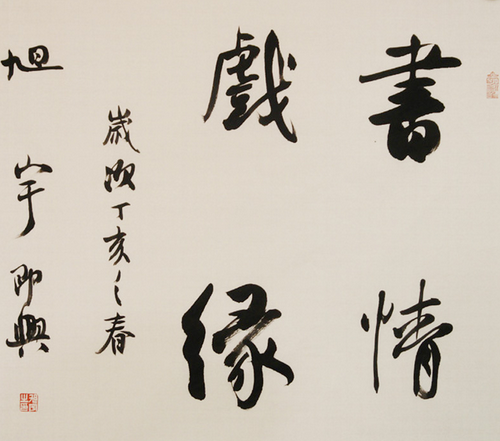 書情
戲緣
歲次丁亥之春
旭宇即興